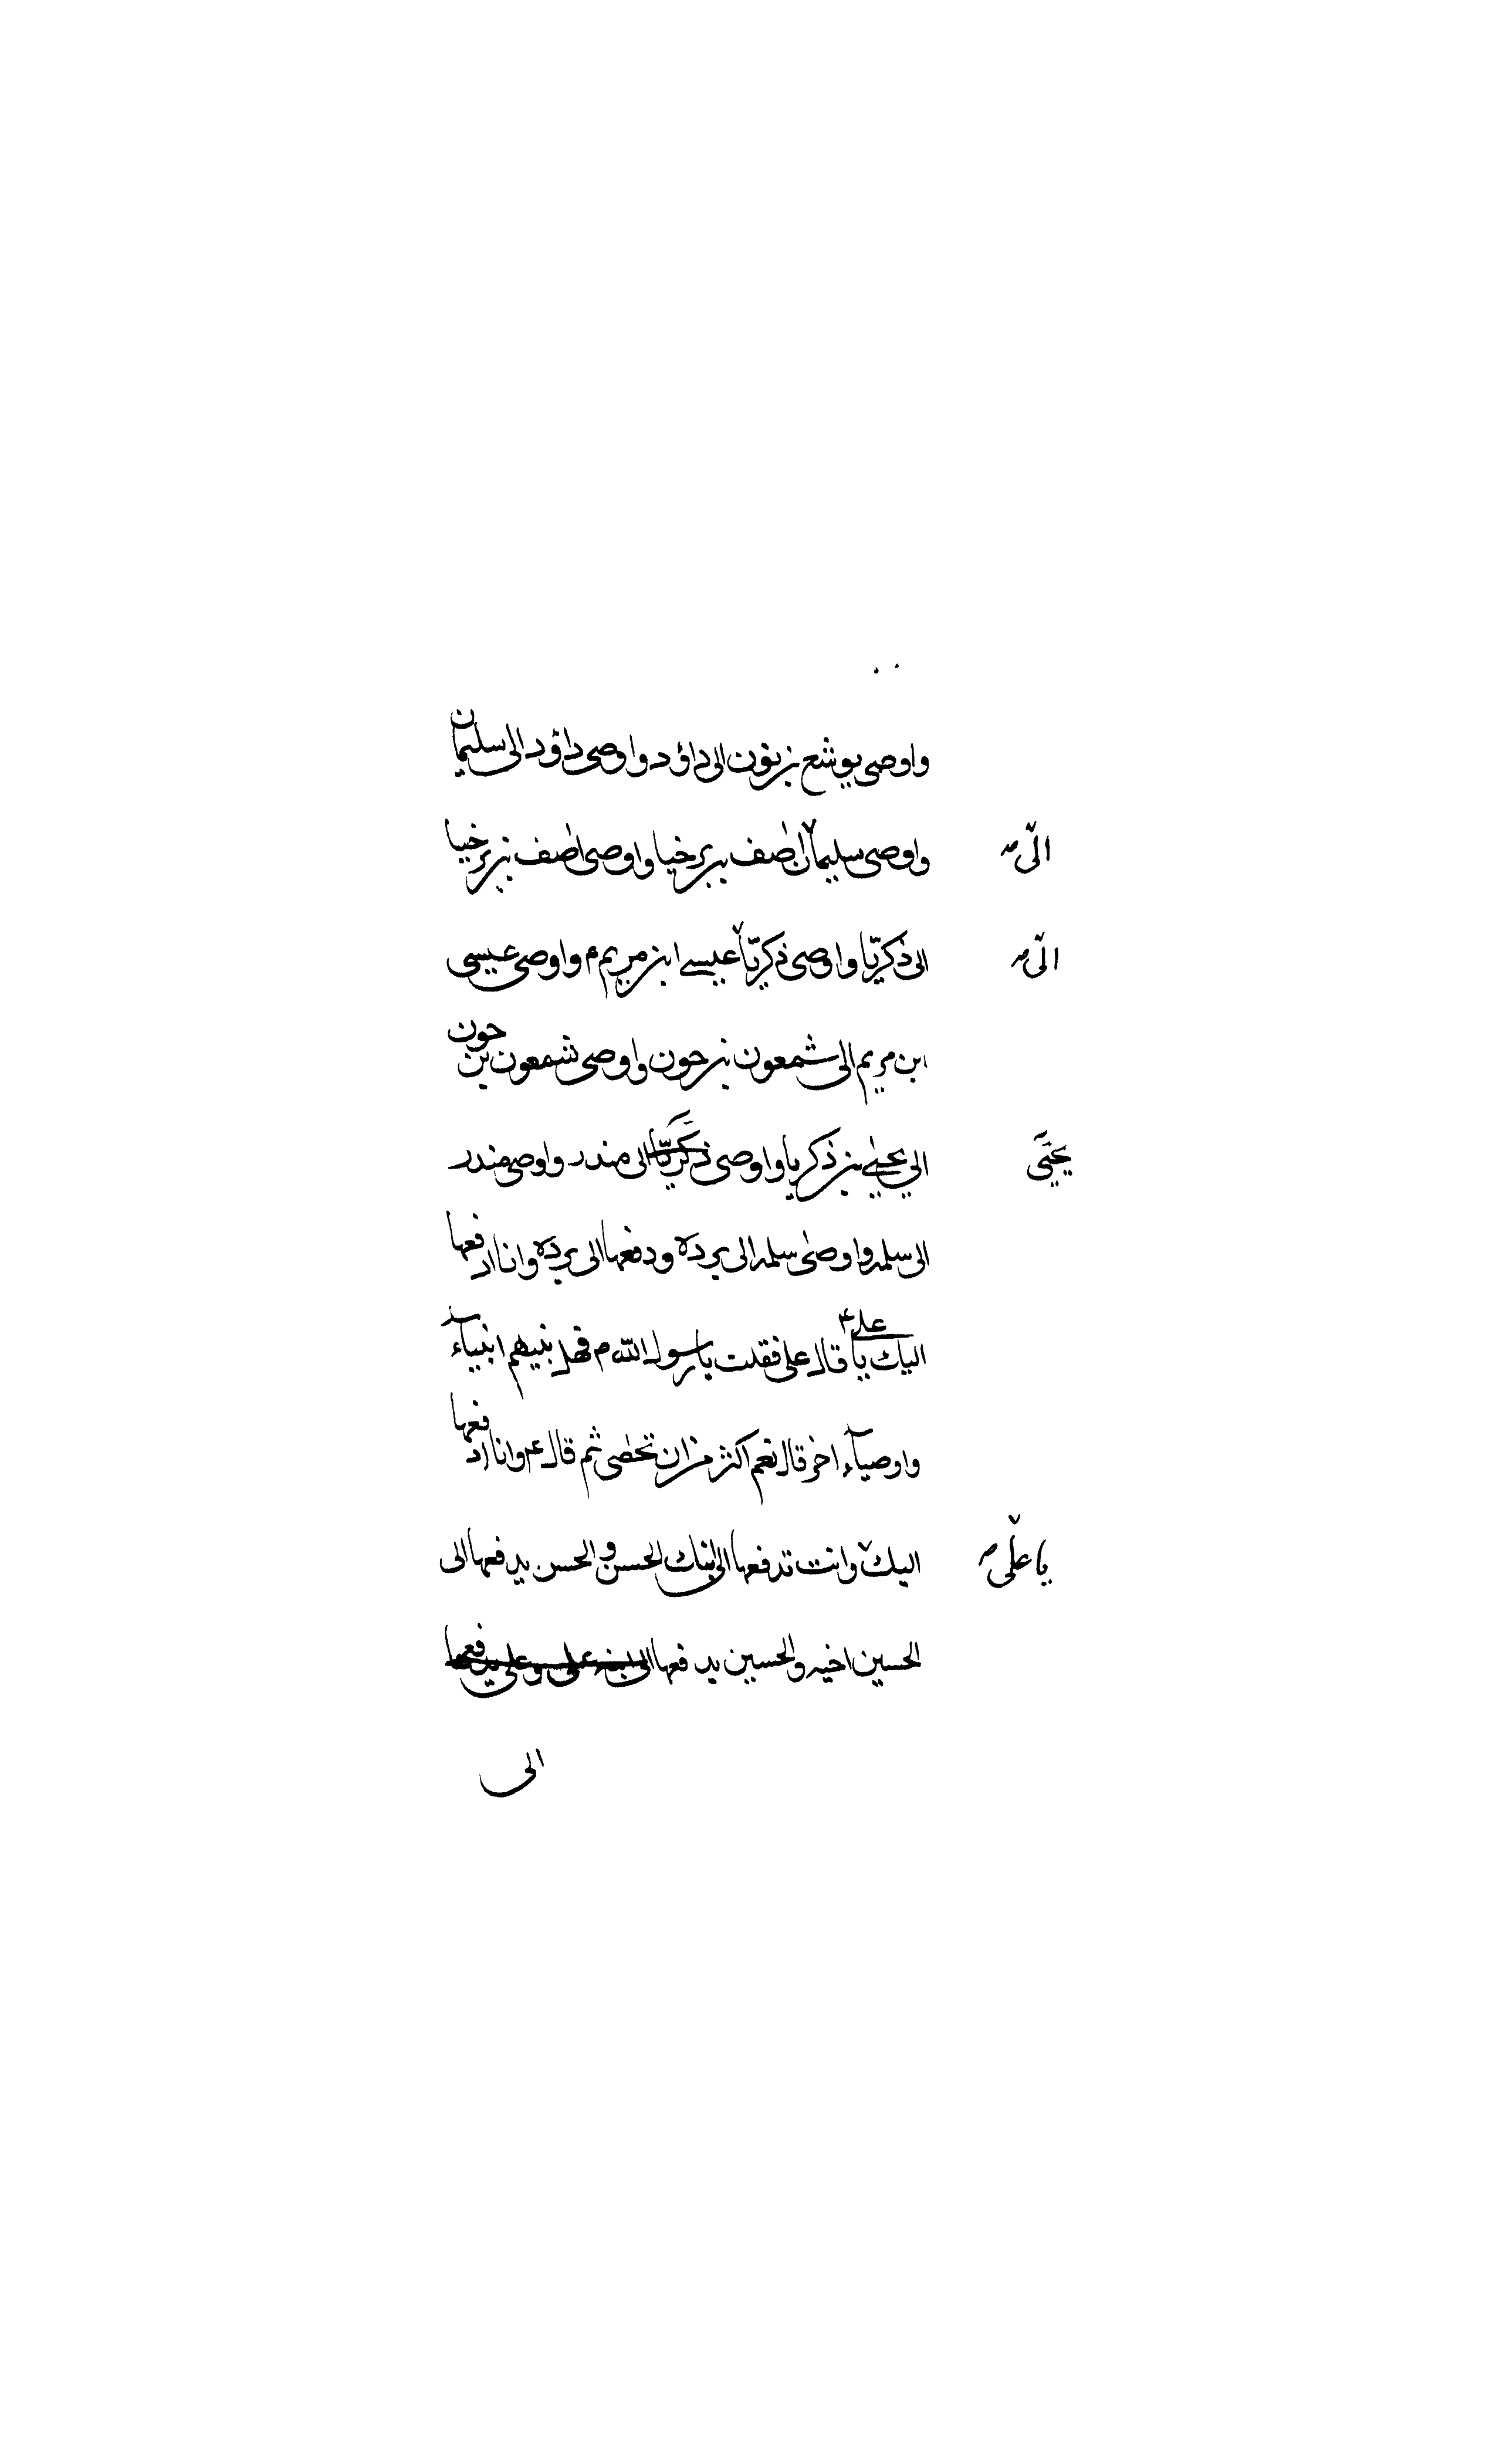 واوصى يوشع بن نون الى داؤد واوصى داؤد الى سليمان
واوصى سليمان اصف بن برخيا واوصى اصف بن برخيا
الى
الى ذكريا واوصى ذكريا عيسى ابن مريم م واوصى عيسى
الى
ابن مريم الى شمعون بن حون واوصى شمعون بن حون
الى يحيى بن ذكريا واوصى ذكريا الى منذر واوصى منذر
يحيى
الى سلمه واوصى سلمه الى برده ودفعها الى برده وانا ادفعها
اليك يا على ع قال على فقلت يا رسول الله م فهل بينهم انبيآء
واوصيآء اخر قال نعم اكثر من ان تحصى ثم قال ع وانا ادفعها
اليك وانت تدفعها الى ابنك الحسن والحسن يدفعها الى
يا على
الحسين اخيه والحسين يدفعها الى ابنه على وعلى يدفعها
الى